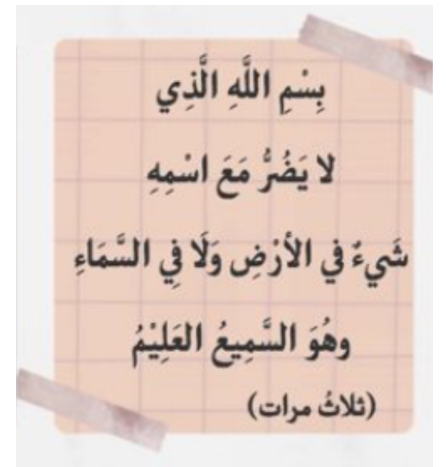 بِسْمِ اللَّهِ الَّذِي
لا يَضُرُّ مَعَ اسْمِهِ
شَيءٌ في الأرْضِ وَلَا فِي السَّمَاءِ
وهُوَ السَّمِيعُ العَلِيْمُ
(ثلاثُ مرات)